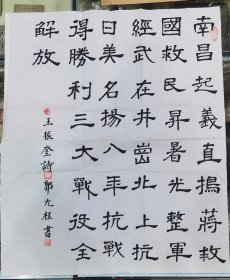 南昌起義直搗蔣救
國救民昇暑光整軍
經武在井崗北上抗
日美名揚八年抗戰
得勝利三大戰役全
解放
王振奎詩郭九桂書